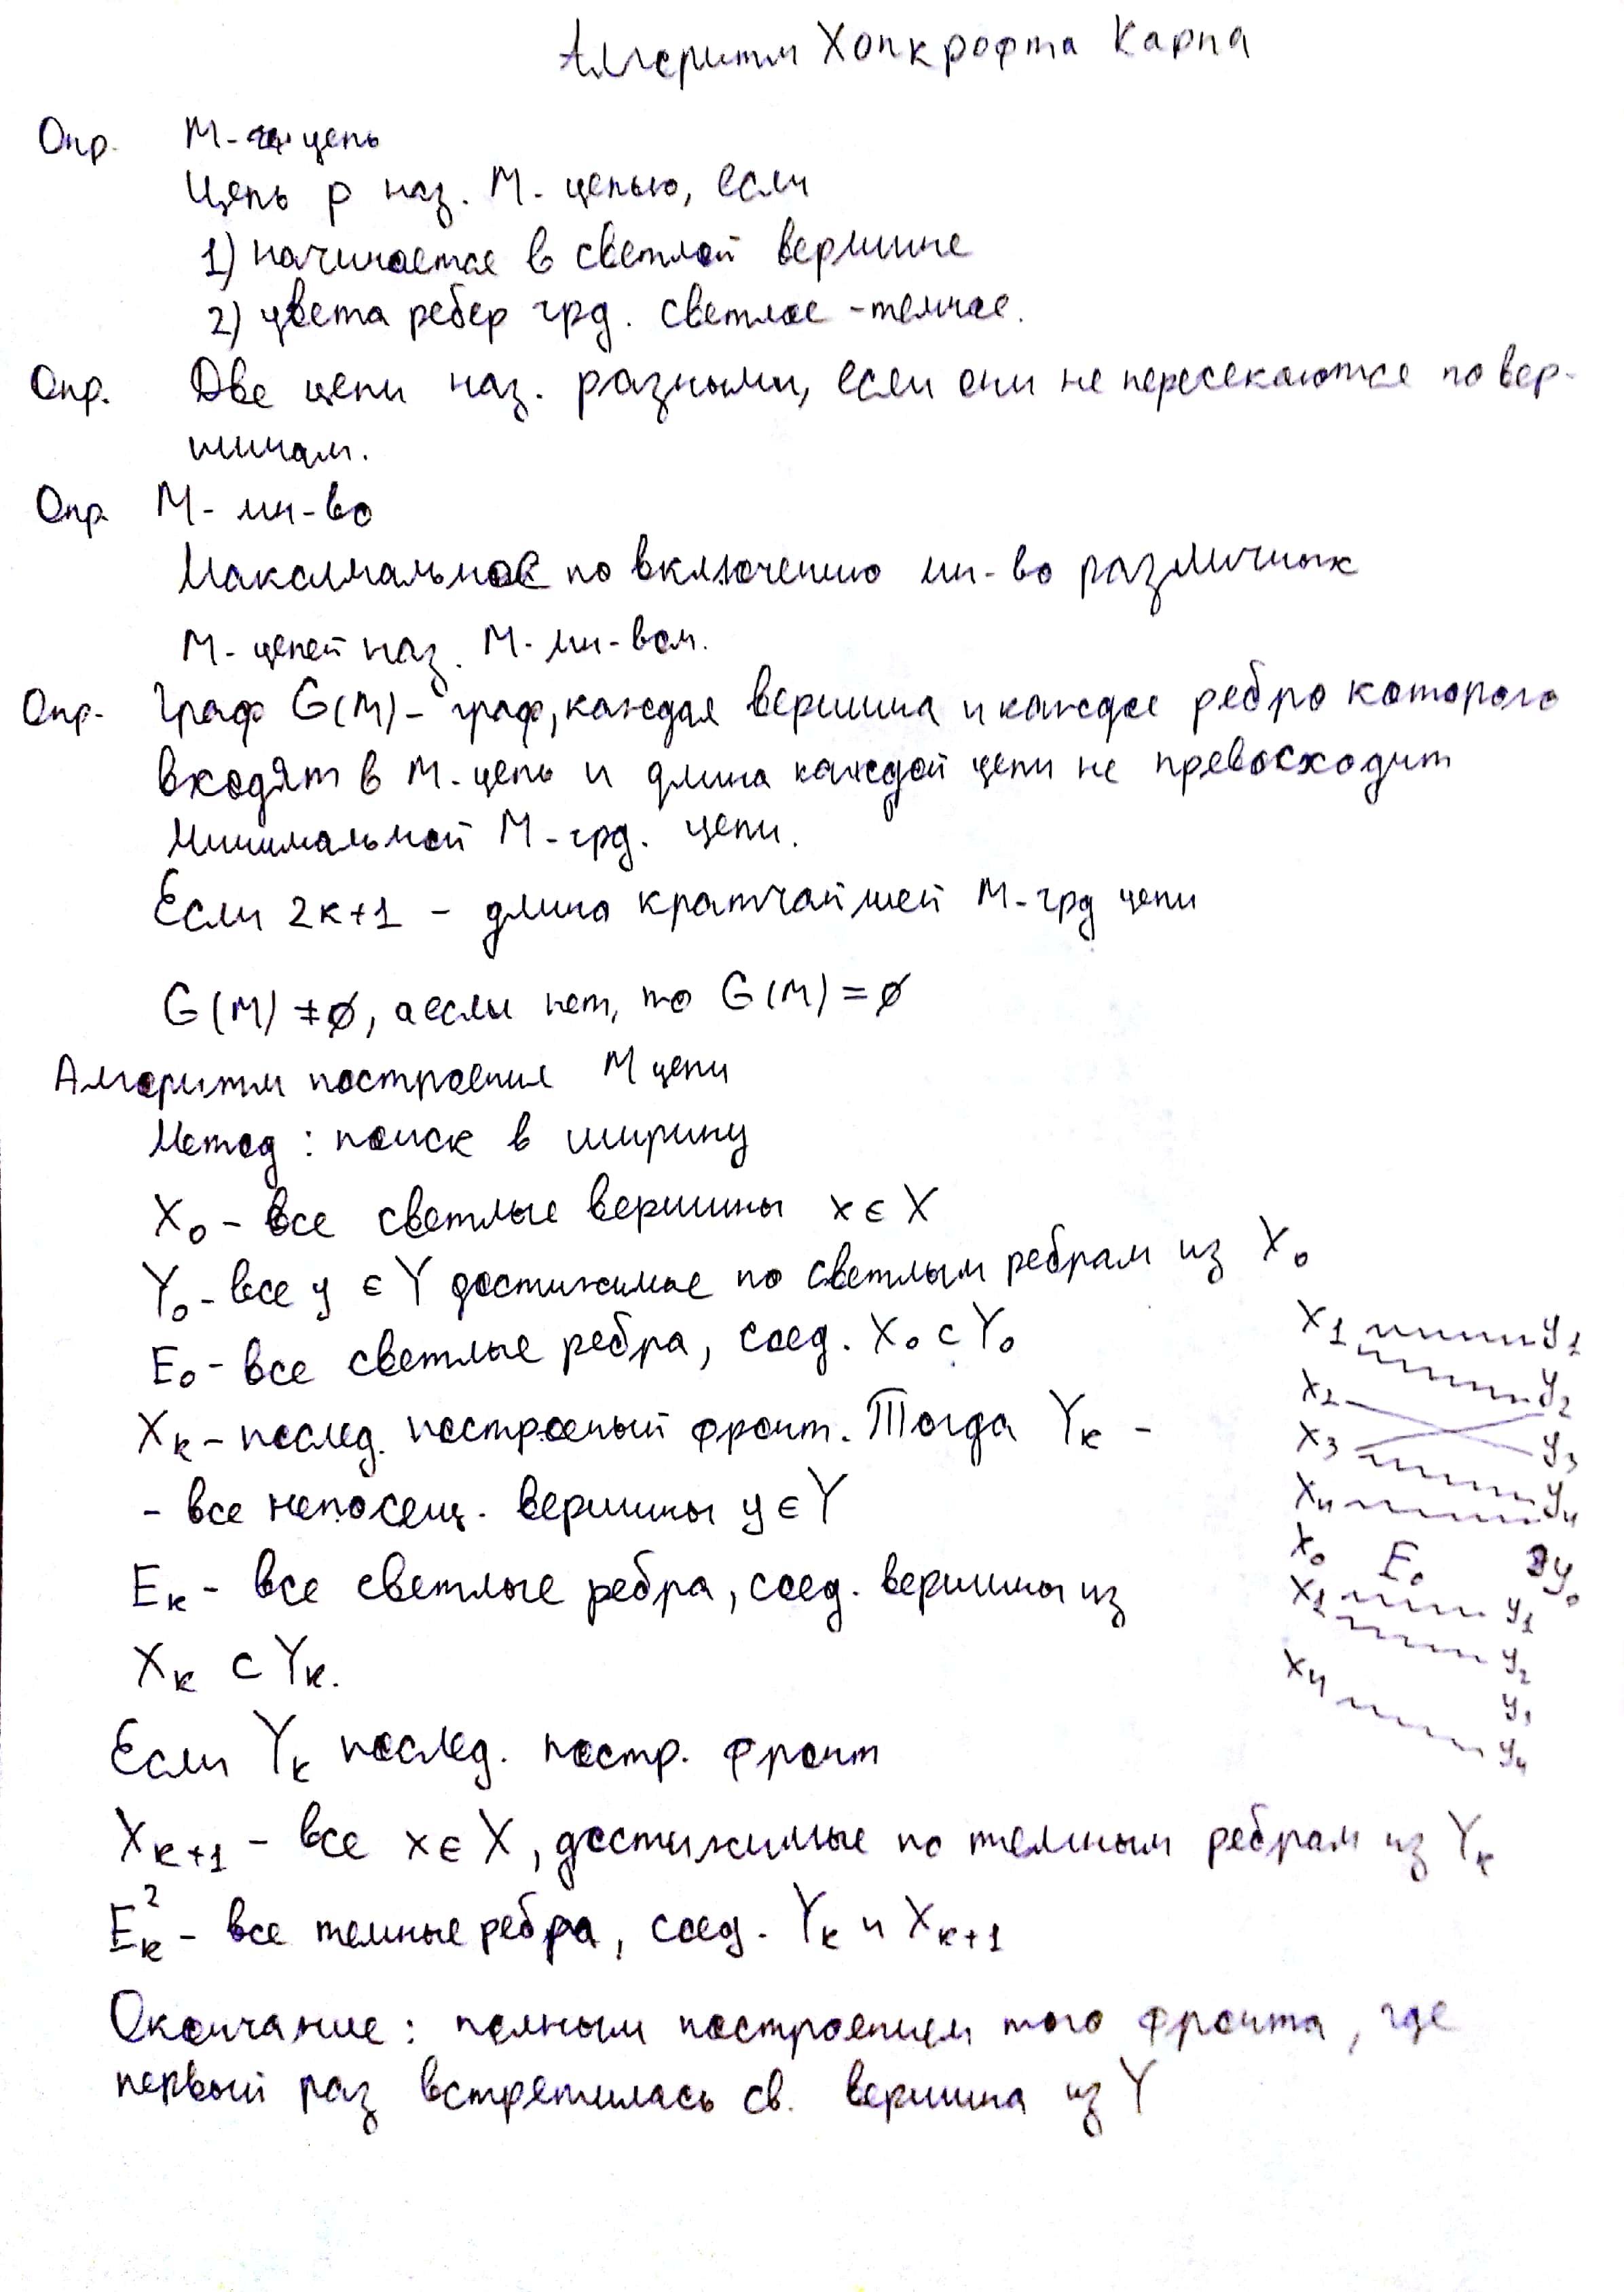 Алгоритм Хопкрофта Карпа
Опр. М-цепь
Цепь p наз. М-цепью, если
1) начинается в светлой вершине
2) цвета ребер чрд. светлое-темное.
Опр. Две цепи наз. разными, если они не пересекаются по вер-
шинам.
Опр М-мн-во
Максимальное по включению мн-во различных
М-цепей наз. М-мн-вом.
Опр. Граф G(M) - граф, каждая вершина и каждое ребро которого
входят в М-цепь и длина каждой цепи не превосходит
минимальной М-чрд. цепи.
Если 2k+1 - длина кратчайшей М-чрд цепи
G(M) ≠ ∅, а если нет, то G(M) = ∅
Алгоритм построения М цепи
Метод: поиск в ширину
X₀ - все светлые вершины x ∈ X
Y₀ - все y ∈ Y достижимые по светлым ребрам из X₀
E₀ - все светлые ребра, соед. X₀ с Y₀
Xₖ - послед. построеный фронт. Тогда Yₖ -
- все непосещ. вершины y ∈ Y
Eₖ - все светлые ребра, соед. вершины из
Xₖ с Yₖ.
Если Yₖ послед. постр. фронт
Xₖ₊₁ - все x ∈ X, достижимые по темным ребрам из Yₖ
Eₖ² - все темные ребра, соед. Yₖ и Xₖ₊₁
Окончание: полным построением того фронта, где
первый раз встретилась св. вершина из Y
X₁ y₁
X₂ y₂
X₃ y₃
X₄ y₄
X₀ E₀ y₀
X₁ y₁
y₂
X₄ y₃
y₄